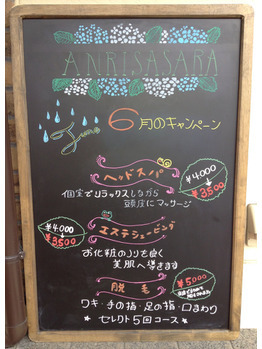 ANRISASARA
June
6月のキャンペーン
ヘッドスパ
¥4,000
↓
¥3500
個室でリラックスしながら
頭皮にマッサージ
¥4,000
↓
¥3500
エステシェービング
お化粧のノリを良く
美肌へ導きます
脱毛
¥5,000
ワキ・手の指・足の指・口まわり
★ セレクト5回コース ★